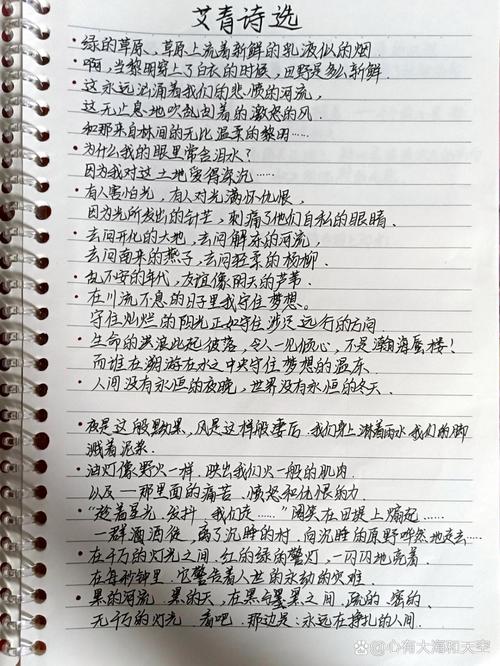 艾青诗选
·绿的草原,草原上流着新鲜的乳液似的烟
·啊,当黎明穿上了白衣的时候,田野是多么新鲜.
这永远汹涌着我们的悲愤的河流,
这无止息地吹刮着的激怒的风.
和那来自林间的无比温柔的黎明……
·为什么我的眼里常含泪水?
因为我对这土地爱得深沉……
·有人害怕光,有人对光满怀仇恨,
因为光所发出的针芒,刺痛了他们自私的眼睛.
·去问开化的大地,去问解冻的河流,
去问南来的燕子,去问轻柔的杨柳.
·乱不安的年代,友谊像阴天的芦苇.
·在川流不息的日子里我守住梦想。
守住灿烂的阳光正如守住涉足远行的方向.
·生命的洪浪此起彼落,令人一见倾心,不是瀚海蜃楼!
而谁在溯游在水之中央守住梦想的温床.
·人间没有永恒的夜晚,世界没有永恒的冬天.
·夜是这般黑,风是这样般凄厉.我们身上淋着雨水.我们的脚
溅着泥浆.
·油灯像野火一样,映出我们火一般的肌肉.
以及——那里面的痛苦、愤怒和仇恨的力.
·“趁着星光,发抖,我们走……”阔笑在田堤上煽起……
一群酒徒,离了沉睡的村,向沉睡的原野哗然地走去……
·在千万的灯光之间.红的绿的警灯,一闪闪地亮着
在每秒钟里,它警告着人世的永劫的灾难.
·黑的河流.黑的天,在黑与黑之间.疏的.密的.
无千万的灯光.看吧.那边是:永远在挣扎的人间.
@心有大海和天空